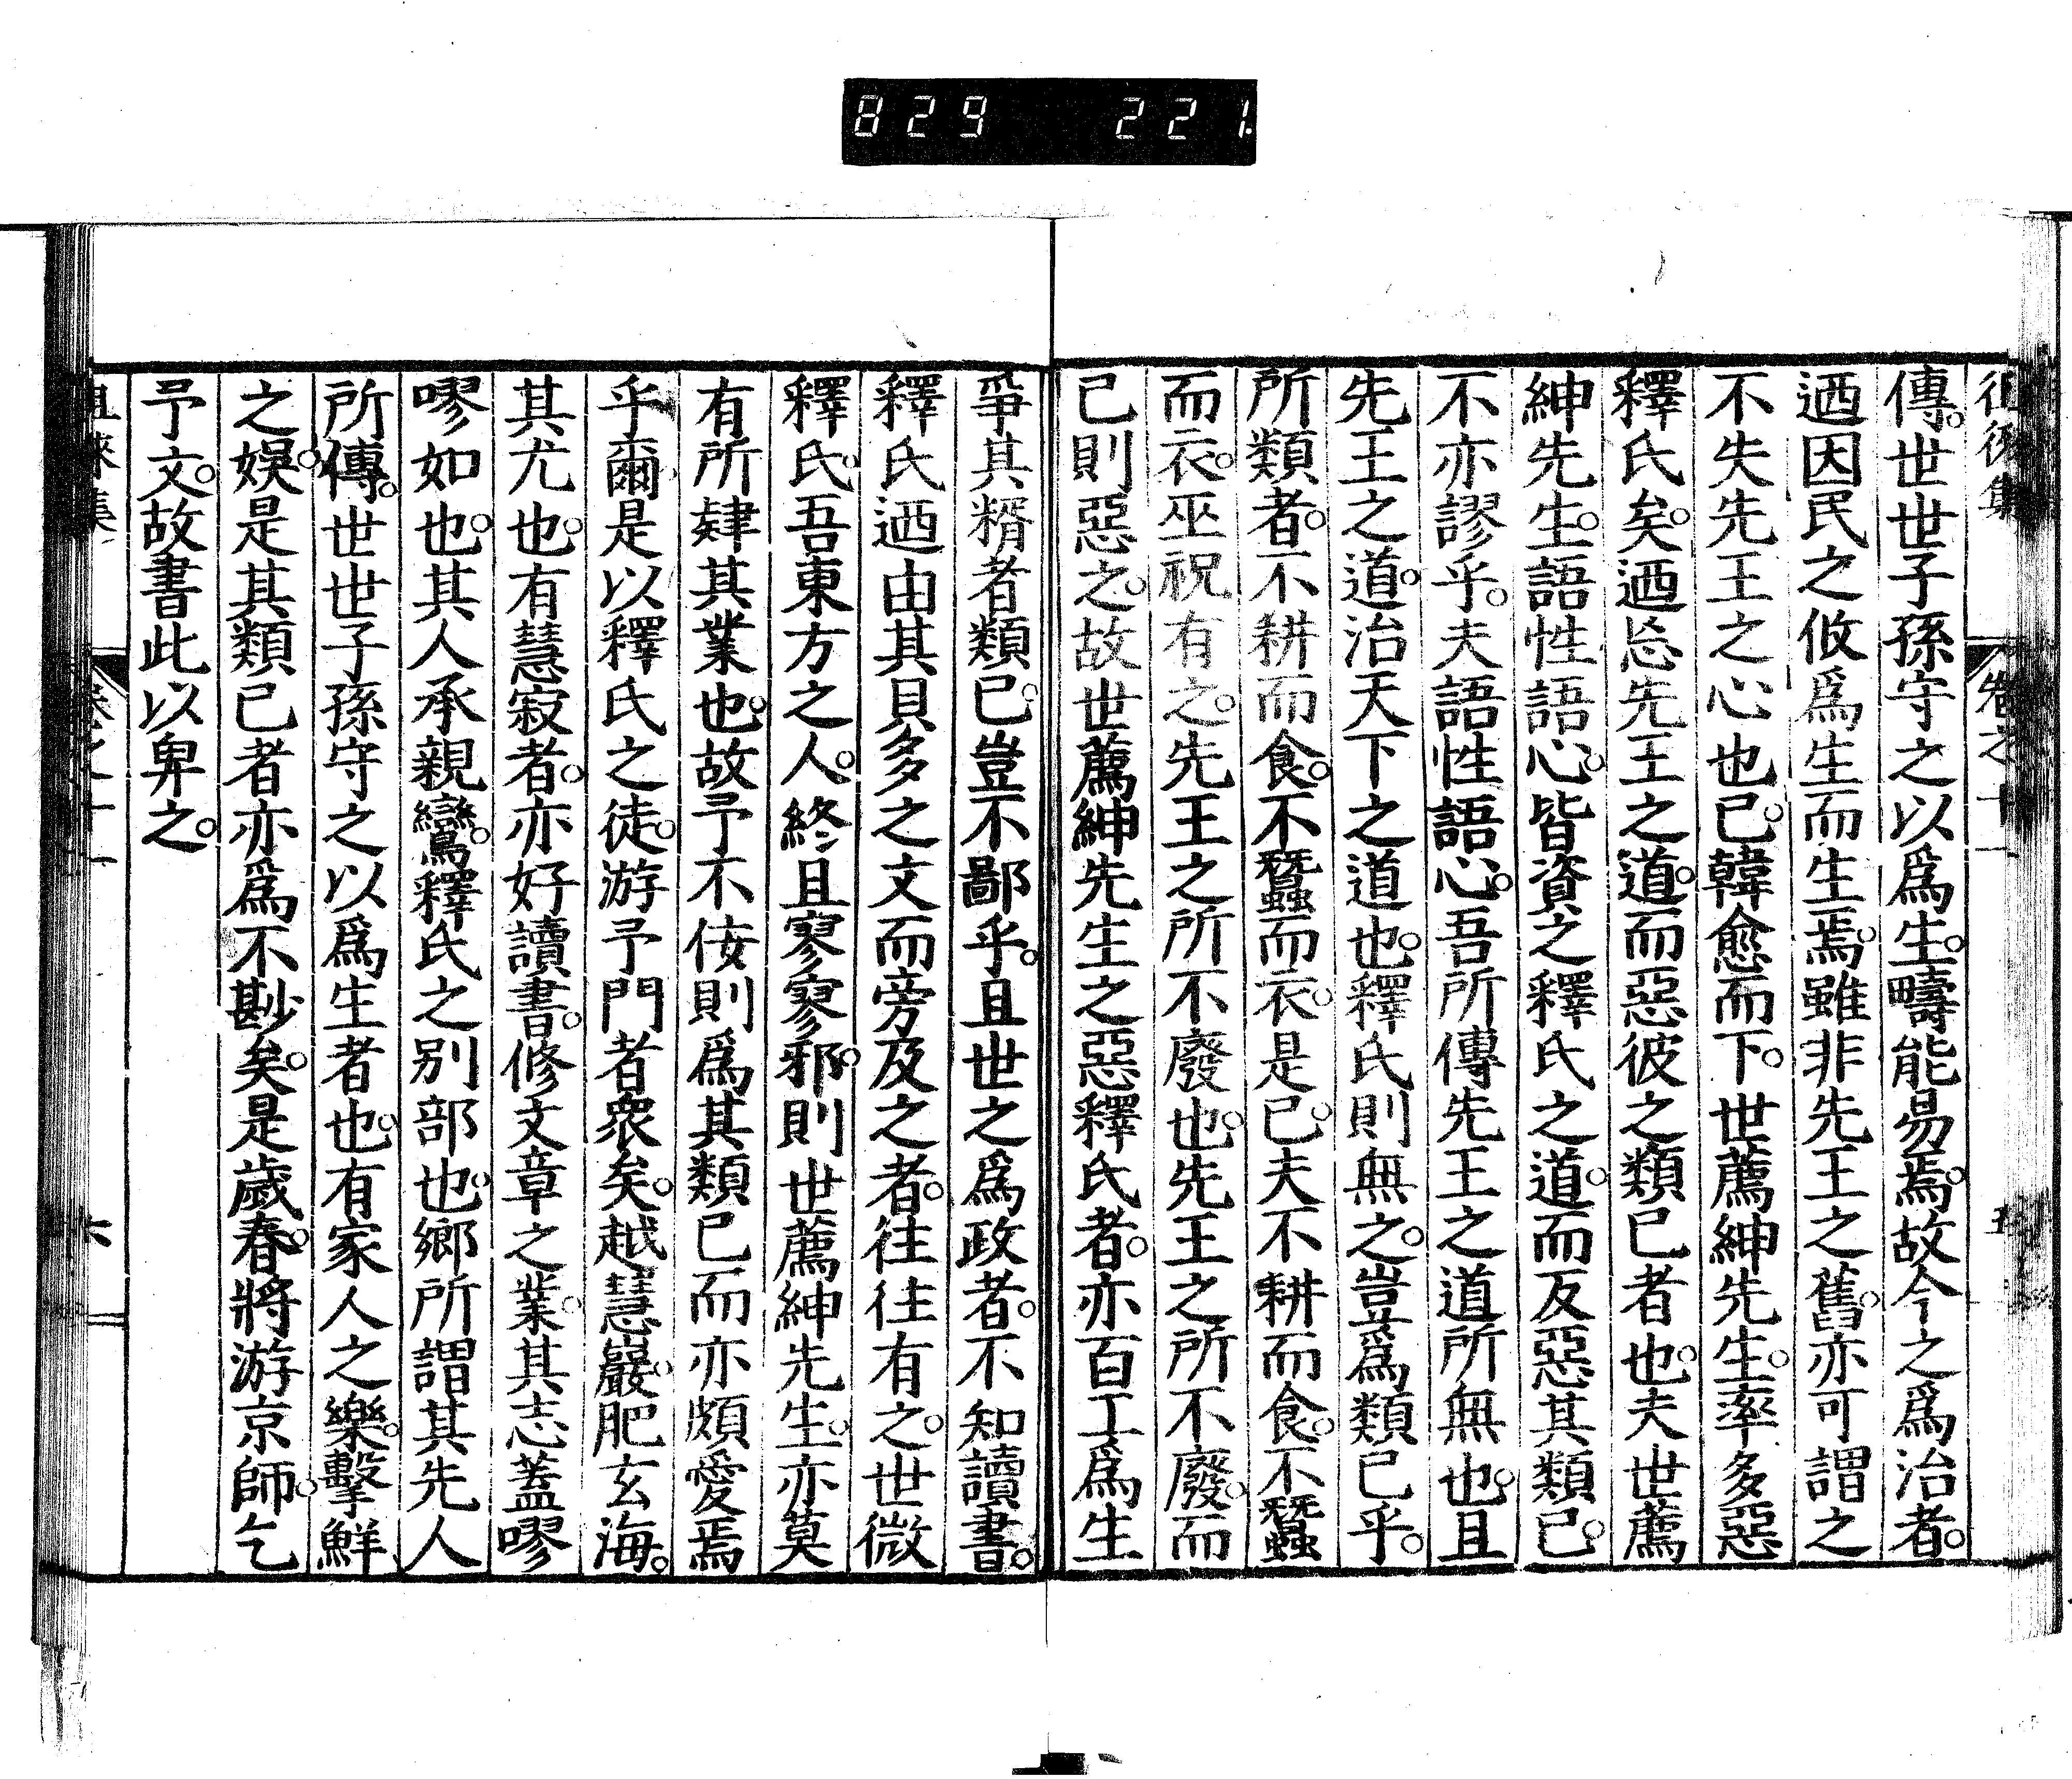 829 221.
徂徠集 卷之十一 五
傳。世世子孫守之以爲生。疇能易焉。故今之爲治者。
迺因民之攸爲生而生焉。雖非先王之舊。亦可謂之
不失先王之心也已。韓愈而下。世薦紳先生。率多惡
釋氏矣。迺忘先王之道。而惡彼之類已者也。夫世薦
紳先生。語性語心。皆資之釋氏之道。而反惡其類已。
不亦謬乎。夫語性語心。吾所傳先王之道所無也。且
先王之道。治天下之道也。釋氏則無之。豈爲類已乎。
所類者。不耕而食。不蠶而衣。是已。夫不耕而食。不蠶
而衣。巫祝有之。先王之所不廢也。先王之所不廢。而
已則惡之。故世薦紳先生之惡釋氏者。亦百工爲生
爭其糈者類已。豈不鄙乎。且世之爲政者。不知讀書。
釋氏迺由其貝多之文而旁及之者。往往有之。世微
釋氏。吾東方之人。終且寥寥邪。則世薦紳先生。亦莫
有所肄其業也。故予不佞則爲其類已而亦頗愛焉
乎爾。是以釋氏之徒。游予門者衆矣。越慧巖。肥玄海。
其尤也。有慧寂者。亦好讀書。修文章之業。其志蓋嘐
嘐如也。其人承親鸞。釋氏之別部也。鄉所謂其先人
所傳。世世子孫守之以爲生者也。有家人之樂。擊鮮
之娛。是其類已者亦爲不尠矣。是歲春。將游京師。乞
予文。故書此以畀之。
徂徠集 卷之十一 六